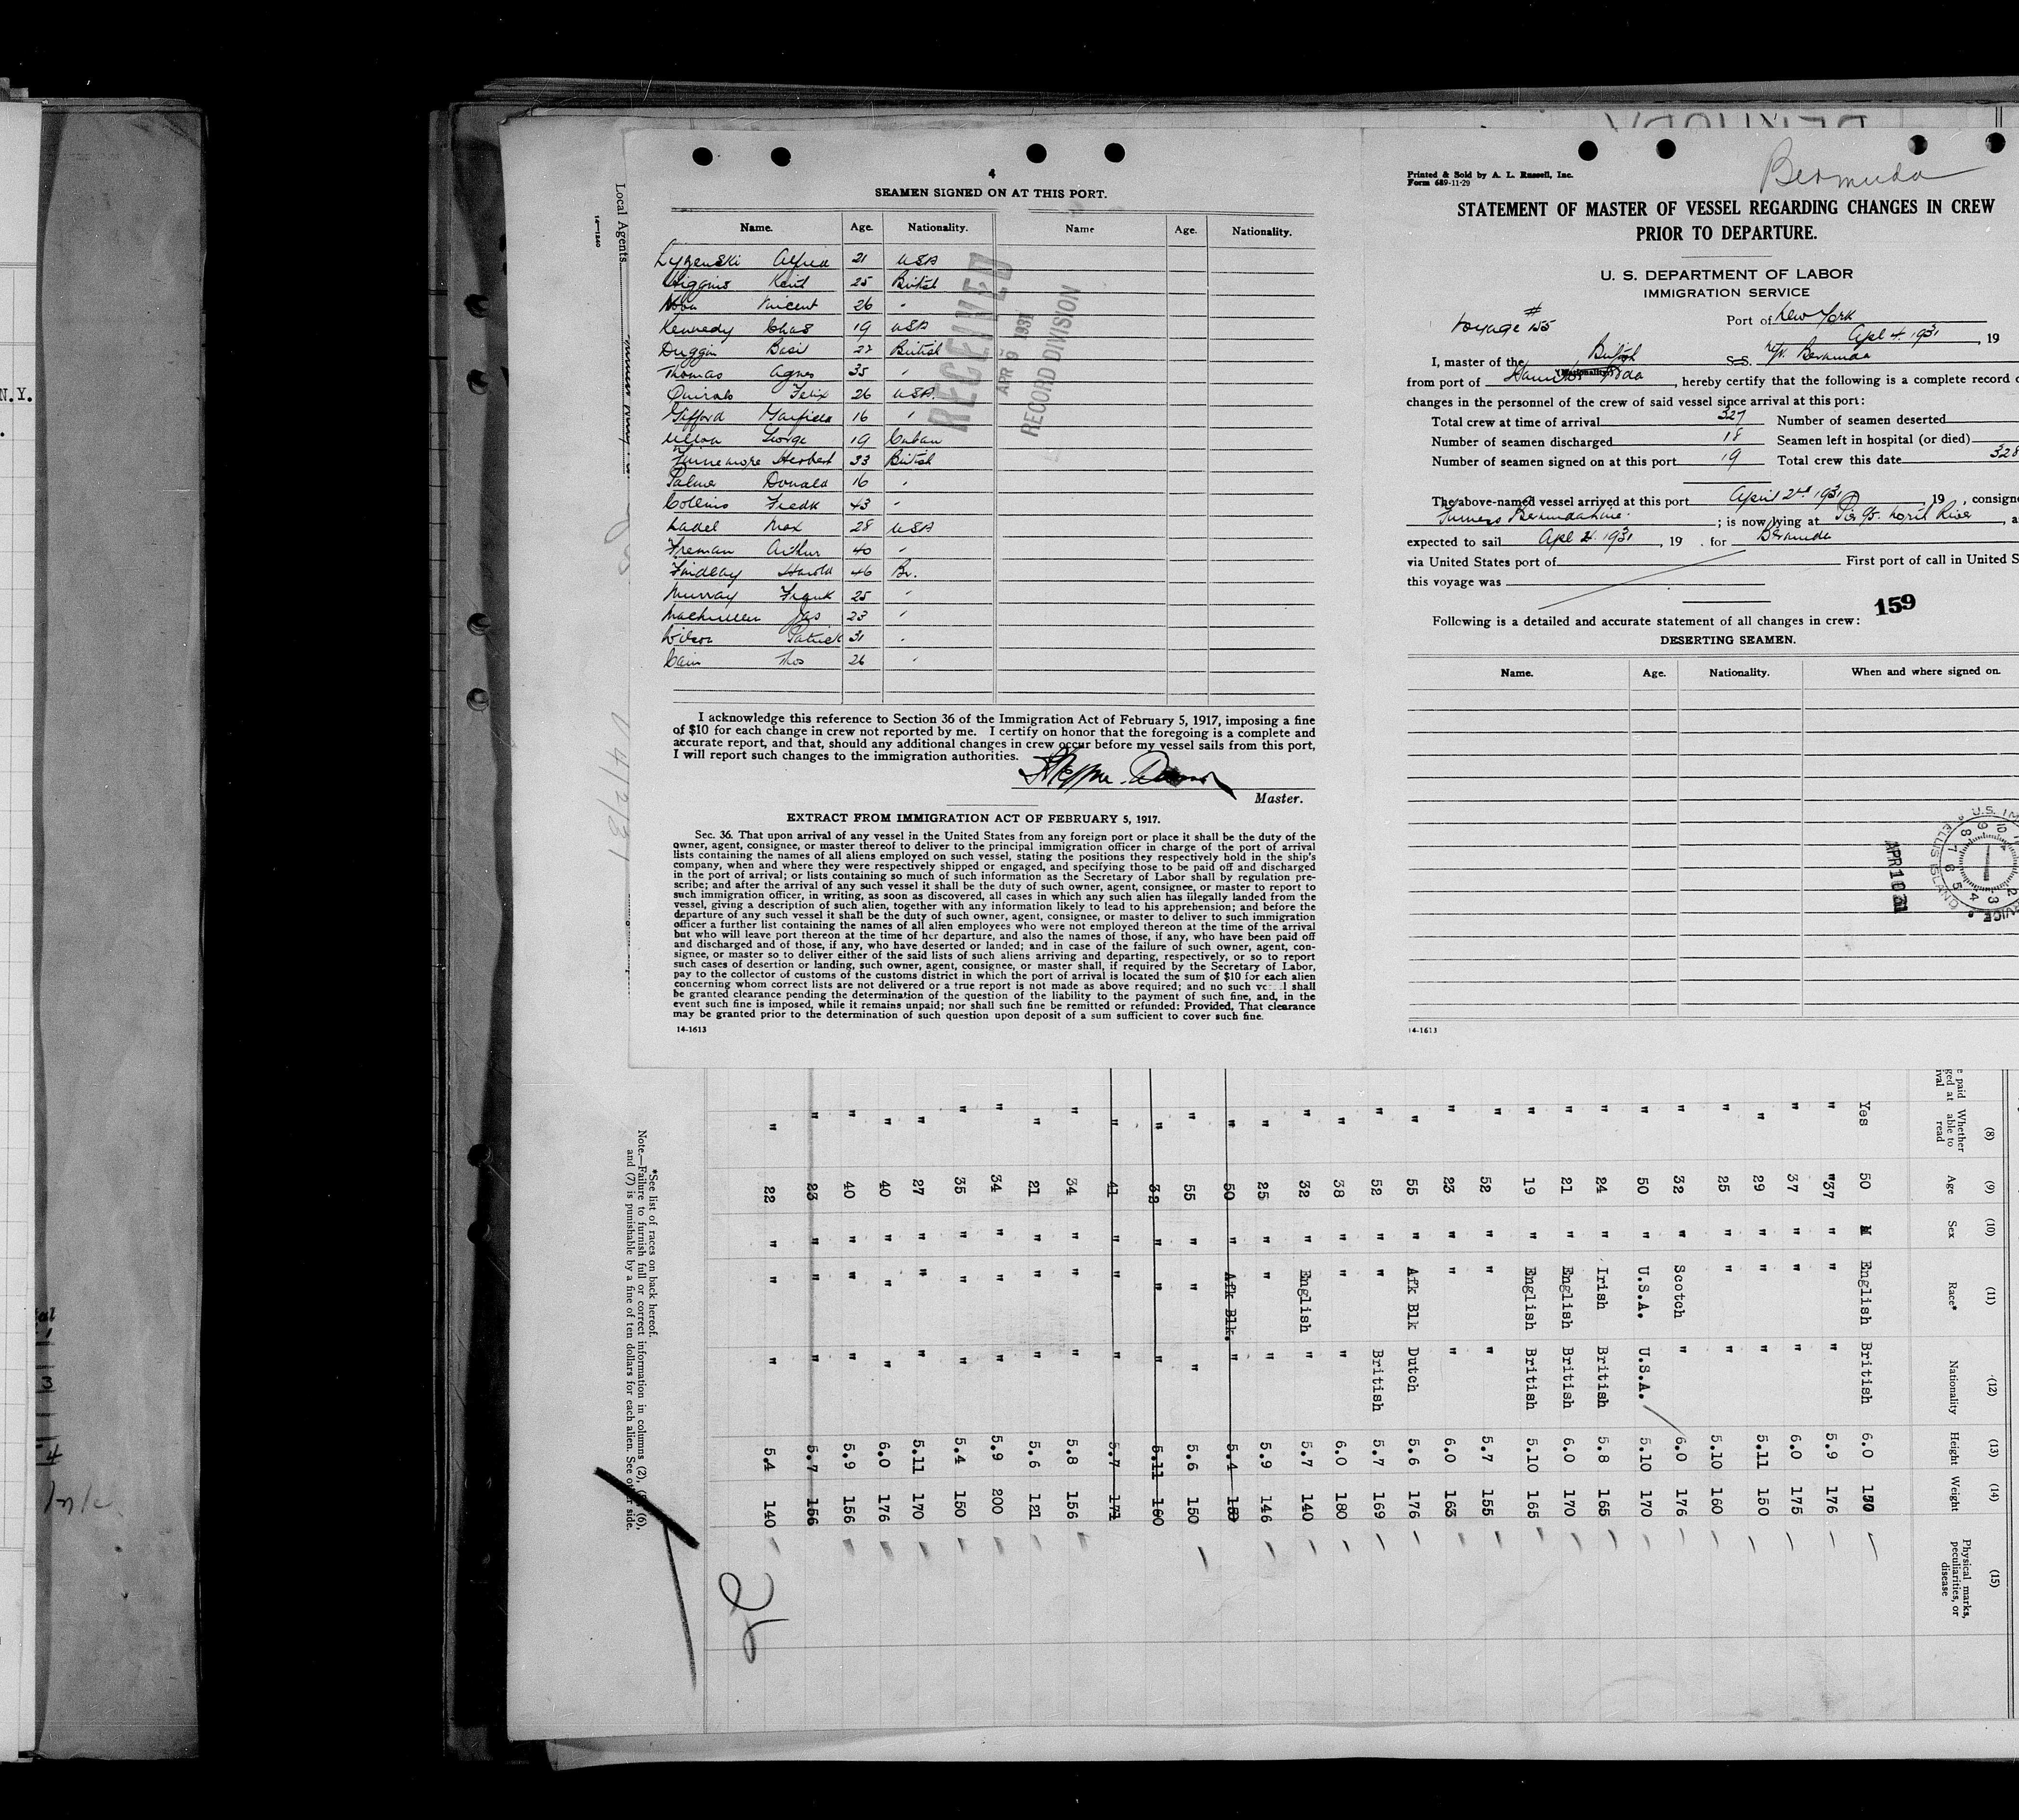 N.Y.
4
SEAMEN SIGNED ON AT THIS PORT.
Name. Age. Nationality. Name Age. Nationality.
Lyzenski Alfred 21 USA
Higgins 25 British
Vincent 26 "
Kennedy Chas 19 USA
Duggin Basil 27 British
Thomas Agnes 35 "
Felix 26 USA.
Gifford Garfield 16 "
Ulloa George 19 Cuban
Finnemore Herbert 33 British
Donald 16 "
Collins Fredk 43 "
Ladel Max 28 USA
Freman Arthur 40 "
Findlay Harold 46 Br.
Murray Frank 25 "
Jas 23 "
Wilson Patrick 31 "
Cain Thos 26 "
RECEIVED
APR 9 1931
RECORD DIVISION
I acknowledge this reference to Section 36 of the Immigration Act of February 5, 1917, imposing a fine
of $10 for each change in crew not reported by me. I certify on honor that the foregoing is a complete and
accurate report, and that, should any additional changes in crew occur before my vessel sails from this port,
I will report such changes to the immigration authorities.
Master.
EXTRACT FROM IMMIGRATION ACT OF FEBRUARY 5, 1917.
Sec. 36. That upon arrival of any vessel in the United States from any foreign port or place it shall be the duty of the
owner, agent, consignee, or master thereof to deliver to the principal immigration officer in charge of the port of arrival
lists containing the names of all aliens employed on such vessel, stating the positions they respectively hold in the ship's
company, when and where they were respectively shipped or engaged, and specifying those to be paid off and discharged
in the port of arrival; or lists containing so much of such information as the Secretary of Labor shall by regulation pre-
scribe; and after the arrival of any such vessel it shall be the duty of such owner, agent, consignee, or master to report to
such immigration officer, in writing, as soon as discovered, all cases in which any such alien has illegally landed from the
vessel, giving a description of such alien, together with any information likely to lead to his apprehension; and before the
departure of any such vessel it shall be the duty of such owner, agent, consignee, or master to deliver to such immigration
officer a further list containing the names of all alien employees who were not employed thereon at the time of the arrival
but who will leave port thereon at the time of her departure, and also the names of those, if any, who have been paid off
and discharged and of those, if any, who have deserted or landed; and in case of the failure of such owner, agent, con-
signee, or master so to deliver either of the said lists of such aliens arriving and departing, respectively, or so to report
such cases of desertion or landing, such owner, agent, consignee, or master shall, if required by the Secretary of Labor,
pay to the collector of customs of the customs district in which the port of arrival is located the sum of $10 for each alien
concerning whom correct lists are not delivered or a true report is not made as above required; and no such shall
be granted clearance pending the determination of the question of the liability to the payment of such fine, and, in the
event such fine is imposed, while it remains unpaid; nor shall such fine be remitted or refunded: Provided, That clearance
may be granted prior to the determination of such question upon deposit of a sum sufficient to cover such fine.
14-1613
Local Agents
14-1240
Printed & Sold by A. L. Russell, Inc.
Form 689-11-29
Bermuda
STATEMENT OF MASTER OF VESSEL REGARDING CHANGES IN CREW
PRIOR TO DEPARTURE.
U. S. DEPARTMENT OF LABOR
IMMIGRATION SERVICE
Voyage # 155
Port of New York
Apl 4. 1931, 19
I, master of the British S.S. Bermuda
(Nationality)
from port of Hamilton Bda, hereby certify that the following is a complete record
changes in the personnel of the crew of said vessel since arrival at this port:
Total crew at time of arrival 327 Number of seamen deserted
Number of seamen discharged 18 Seamen left in hospital (or died)
Number of seamen signed on at this port 19 Total crew this date 328
The above-named vessel arrived at this port April 2nd 1931, 19 , consign
Furness Bermuda Line. ; is now lying at Pier 95. North River
expected to sail Apl 4. 1931, 19 . for Bermuda
via United States port of First port of call in United S
this voyage was
159
Following is a detailed and accurate statement of all changes in crew:
DESERTING SEAMEN.
Name. Age. Nationality. When and where signed on.
U.S. IM
ELLIS ISLAND
APR 10 31
14-1613
(8) Whether able to read
(9) Age
(10) Sex
(11) Race*
(12) Nationality
(13) Height
(14) Weight
(15) Physical marks, peculiarities, or disease
Yes 50 M English British 6.0 150
" "37 " " " 5.9 176
" 37 " " " 6.0 175
" 29 " " " 5.11 150
" 25 " " " 5.10 160
" 32 " Scotch " 6.0 176
" 50 " U.S.A. U.S.A. 5.10 170
" 24 " Irish British 5.8 165
" 21 " English British 6.0 170
" 19 " English British 5.10 165
" 52 " " " 5.7 155
" 23 " " " 6.0 163
" 55 " Afk Blk Dutch 5.6 176
" 52 " " British 5.7 169
" 38 " " " 6.0 180
" 32 " English " 5.7 140
" 25 " " " 5.9 146
" 50 " Afk Blk. " 5.4 150
" 55 " " " 5.6 150
" 32 " " " 5.11 160
" 41 " " " 5.7 171
" 34 " " " 5.8 156
" 21 " " " 5.6 121
" 34 " " " 5.9 200
" 35 " " " 5.4 150
" 27 " " " 5.11 170
" 40 " " " 6.0 176
" 40 " " " 5.9 156
" 23 " " " 5.7 156
" 22 " " " 5.4 140
*See list of races on back hereof.
Note.—Failure to furnish full or correct information in columns (2), (6),
and (7) is punishable by a fine of ten dollars for each alien. See other side.